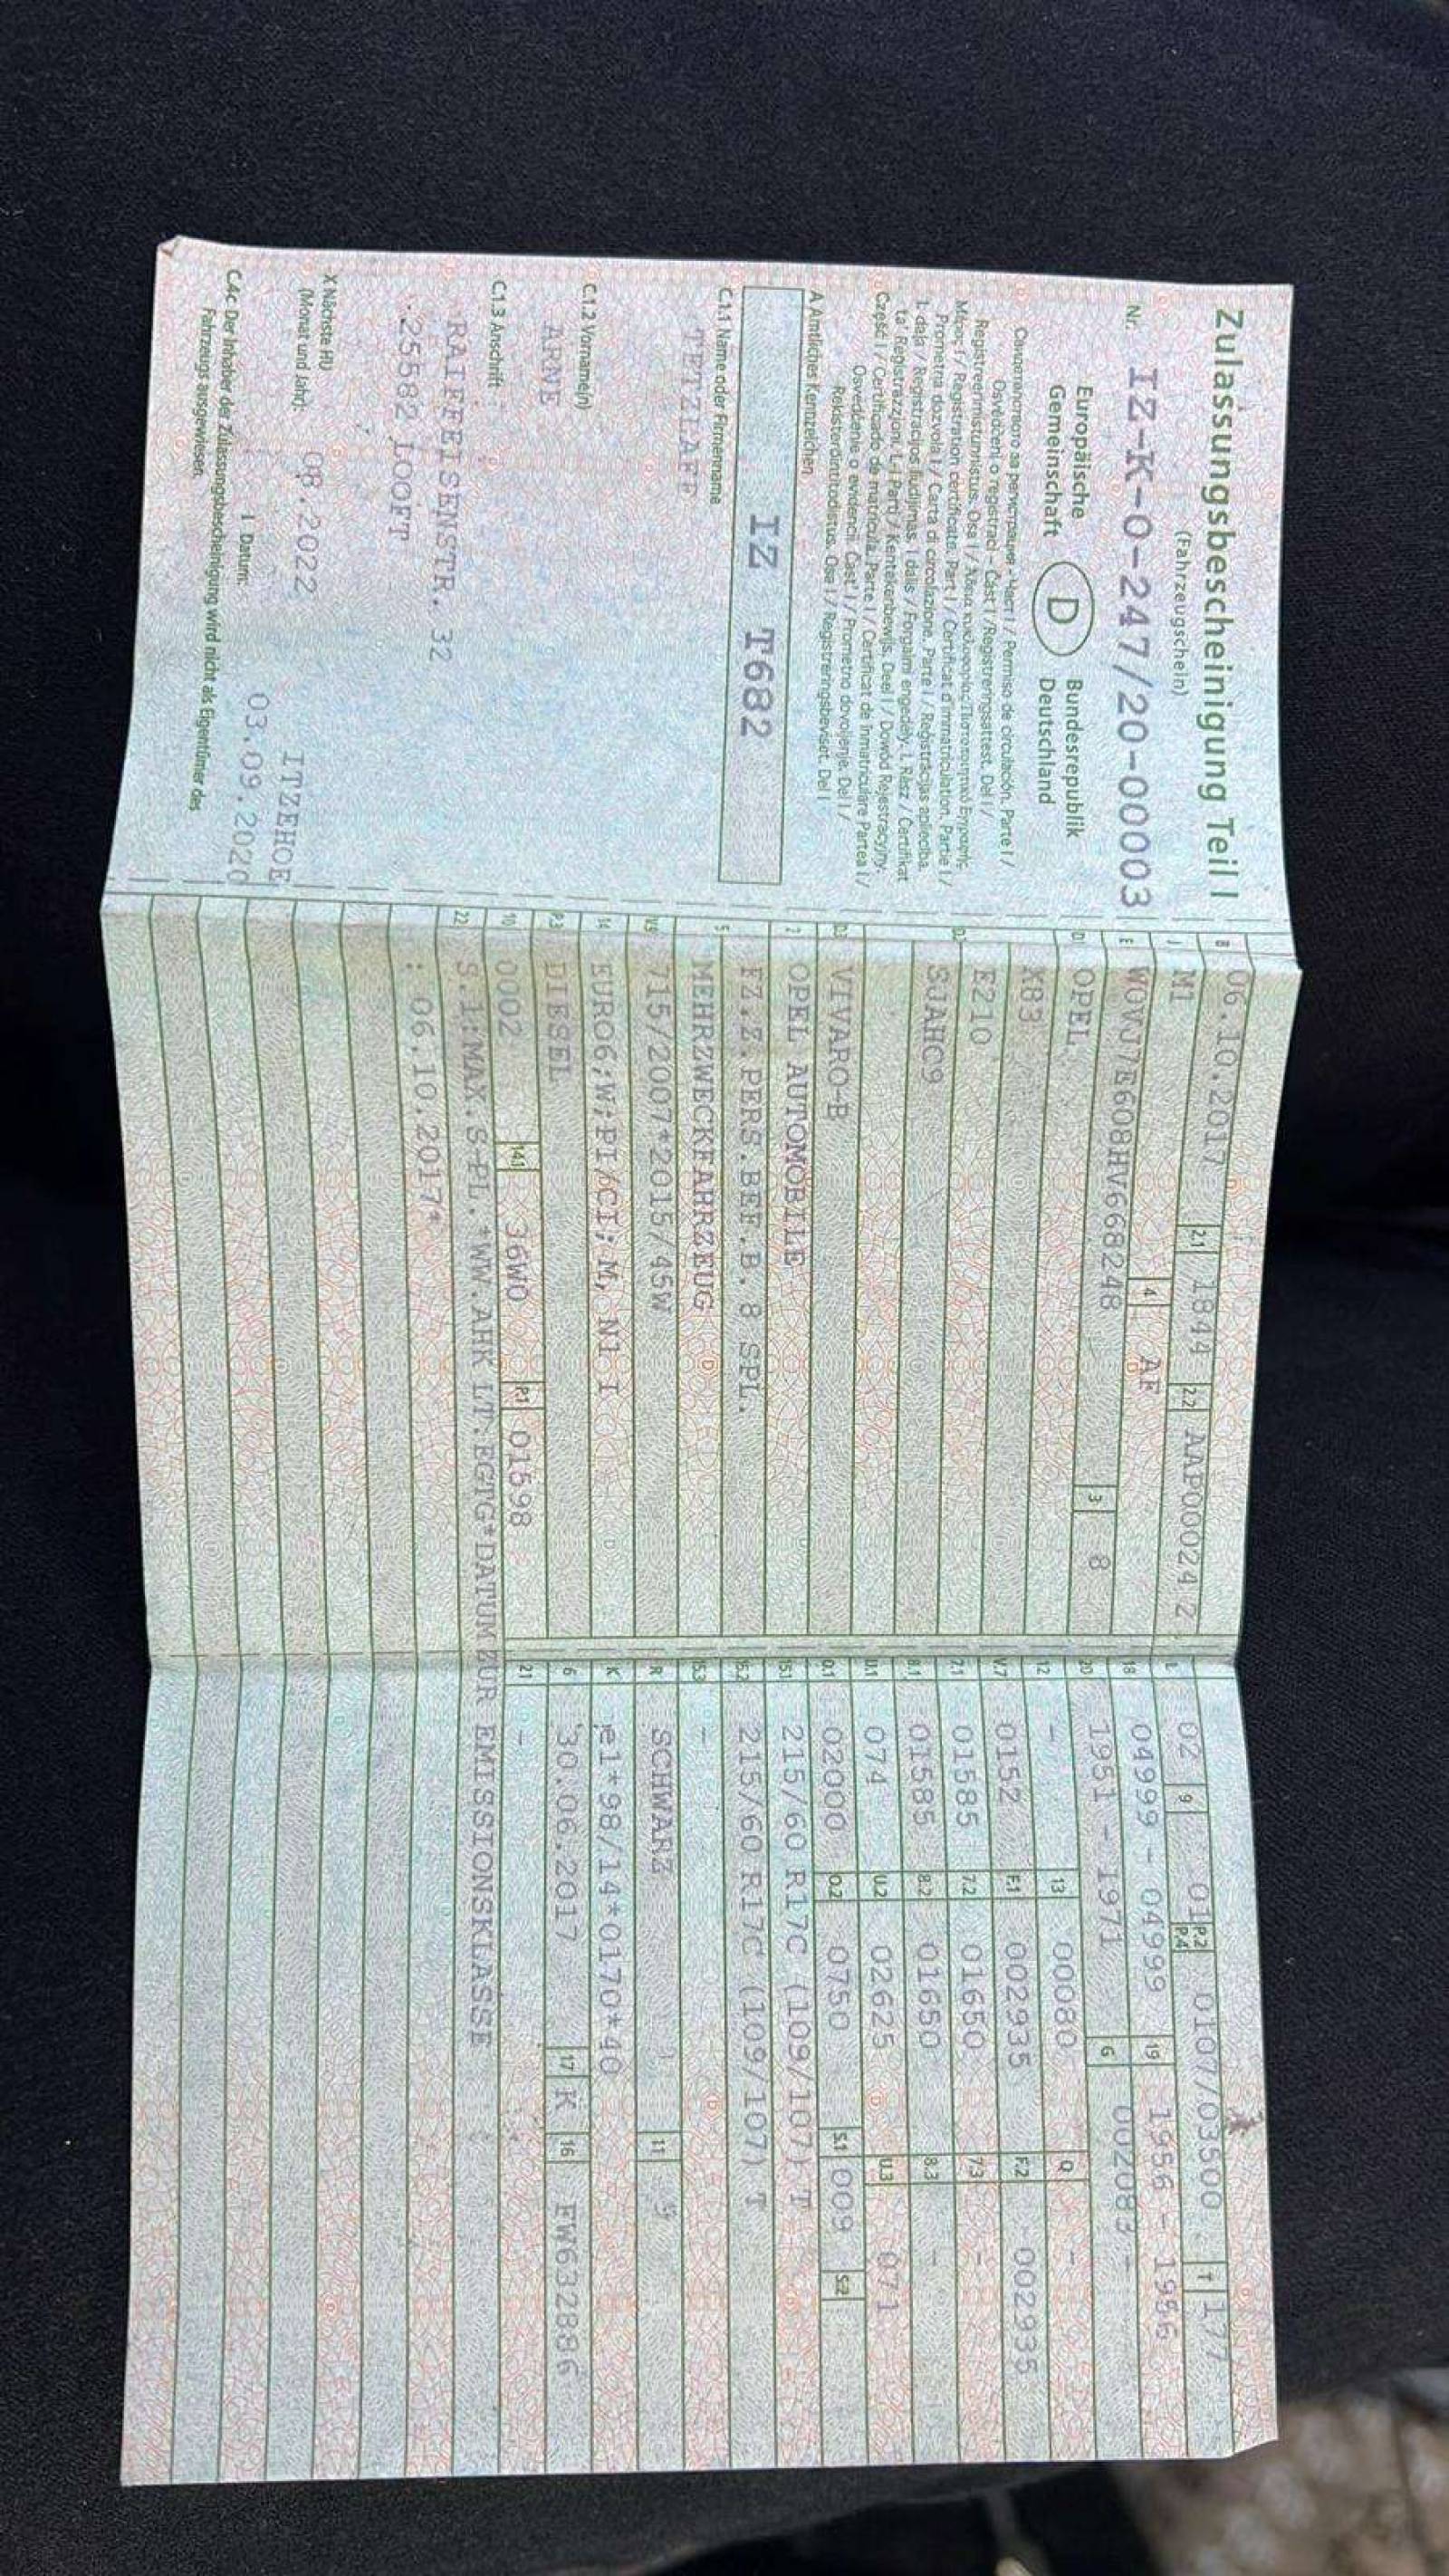 Zulassungsbescheinigung Teil I
(Fahrzeugschein)
Nr. IZ-K-0-247/20-00003
Europäische
Gemeinschaft
D
Bundesrepublik
Deutschland
Свидетелство за регистрация - Част I / Permiso de circulación. Parte I /
Osvědčení o registraci – Část I / Registreringsattest. Del I /
Registreerimistunnistus. Osa I / Άδεια κυκλοφορίας/Πιστοποιητικό Εγγραφής
Μέρος I / Registration certificate. Part I / Certificat d'immatriculation. Partie I /
Prometna dozvola I / Carta di circolazione. Parte I / Reģistrācijas apliecība.
I. daļa / Registracijos liudijimas. I dalis / Forgalmi engedély. I. Rész / Ċertifikat
ta' Reġistrazzjoni. L-I Parti / Kentekenbewijs. Deel I / Dowód Rejestracyjny.
Część I / Certificado de matrícula. Parte I / Certificat de înmatriculare Partea I /
Osvedčenie o evidencii. Časť I / Prometno dovoljenje. Del I /
Rekisteröintitodistus. Osa I / Registreringsbeviset. Del I
A Amtliches Kennzeichen
IZ T682
C.1.1 Name oder Firmenname
TETZLAFF
C.1.2 Vorname(n)
ARNE
C.1.3 Anschrift
RAIFFEISENSTR. 32
25582 LOOFT
X Nächste HU
(Monat und Jahr):
08.2022
ITZEHOE
I Datum:
03.09.2020
C.4c Der Inhaber der Zulassungsbescheinigung wird nicht als Eigentümer des
Fahrzeugs ausgewiesen.
B 06.10.2017 2.1 1844 2.2 AAP000242
J M1 4 AF
E W0VJ7E608HV668248 3 8
D.1 OPEL
X83
D.2 E210
SJAHC9
D.3 VIVARO-B
2 OPEL AUTOMOBILE
FZ.Z.PERS.BEF.B. 8 SPL.
5 MEHRZWECKFAHRZEUG
V.9 715/2007*2015/45W
14 EURO6;W;PI/CI; M, N1 I
P.3 DIESEL
10 0002 14.1 36W0 P.1 01598
22 S.1:MAX.S-PL.*WW.AHK LT.EGTG*DATUM ZUR EMISSIONSKLASSE
: 06.10.2017*
L 02 9 01 P.2 P.4 0107/03500 T 177
18 04999 - 04999 19 1956 - 1956
20 1951 - 1971 G 002083 -
12 - 13 00080 Q -
V.7 0152 F.1 002935 F.2 002935
7.1 01585 7.2 01650 7.3 -
8.1 01585 8.2 01650 8.3 -
U.1 074 U.2 02625 U.3 071
O.1 02000 O.2 0750 S.1 009 S.2
15.1 215/60 R17C (109/107) T
15.2 215/60 R17C (109/107) T
15.3 -
R SCHWARZ 11
K e1*98/14*0170*40
6 30.06.2017 17 K 16 FW632886
21 -